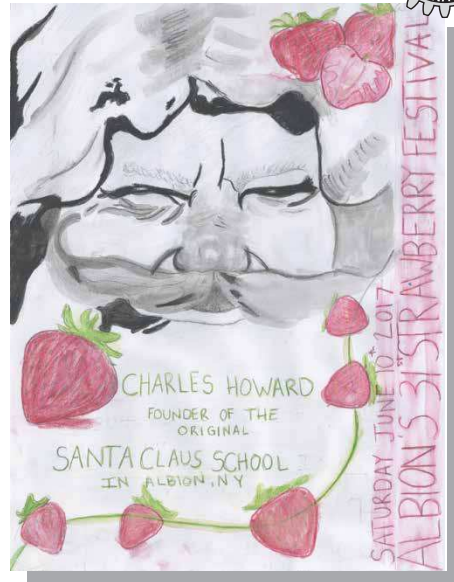 CHARLES HOWARD
FOUNDER OF THE
ORIGINAL
SANTA CLAUS SCHOOL
IN ALBION, NY
SATURDAY JUNE 10th 2017
ALBION'S 31st STRAWBERRY FESTIVAL